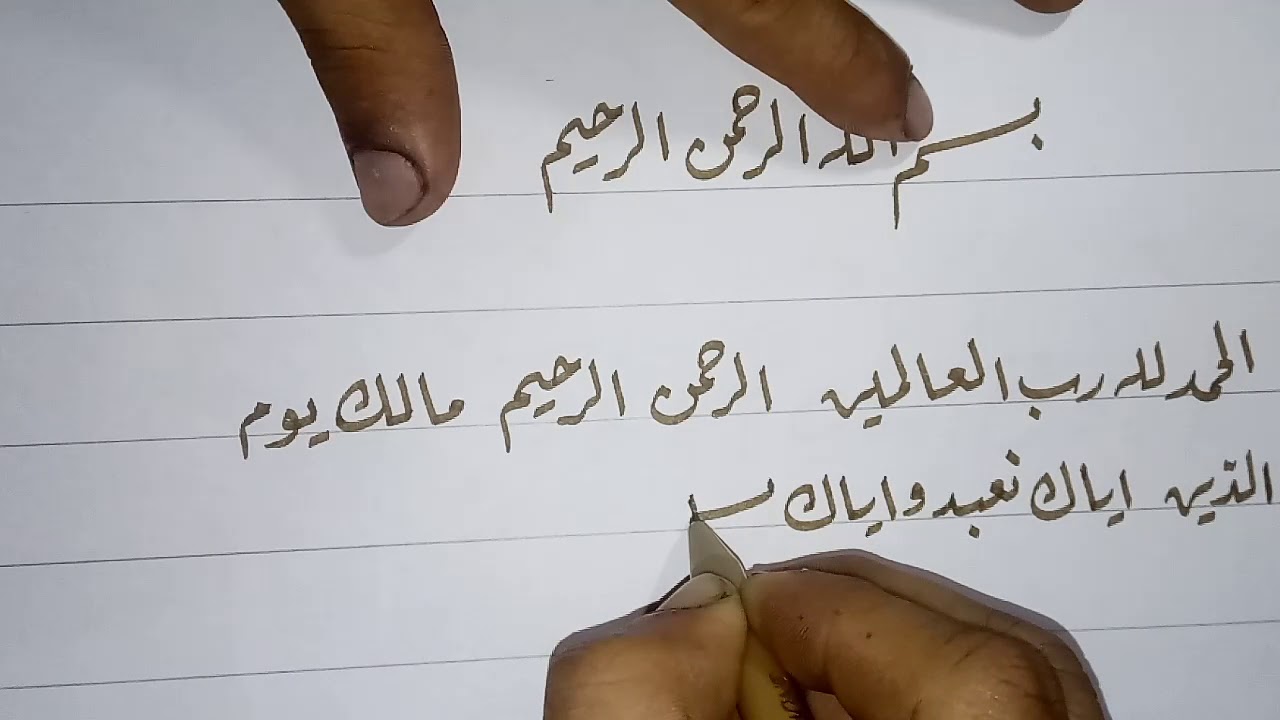 بسم الله الرحمن الرحيم
الحمد لله رب العالمين الرحمن الرحيم مالك يوم
الدين اياك نعبد واياك